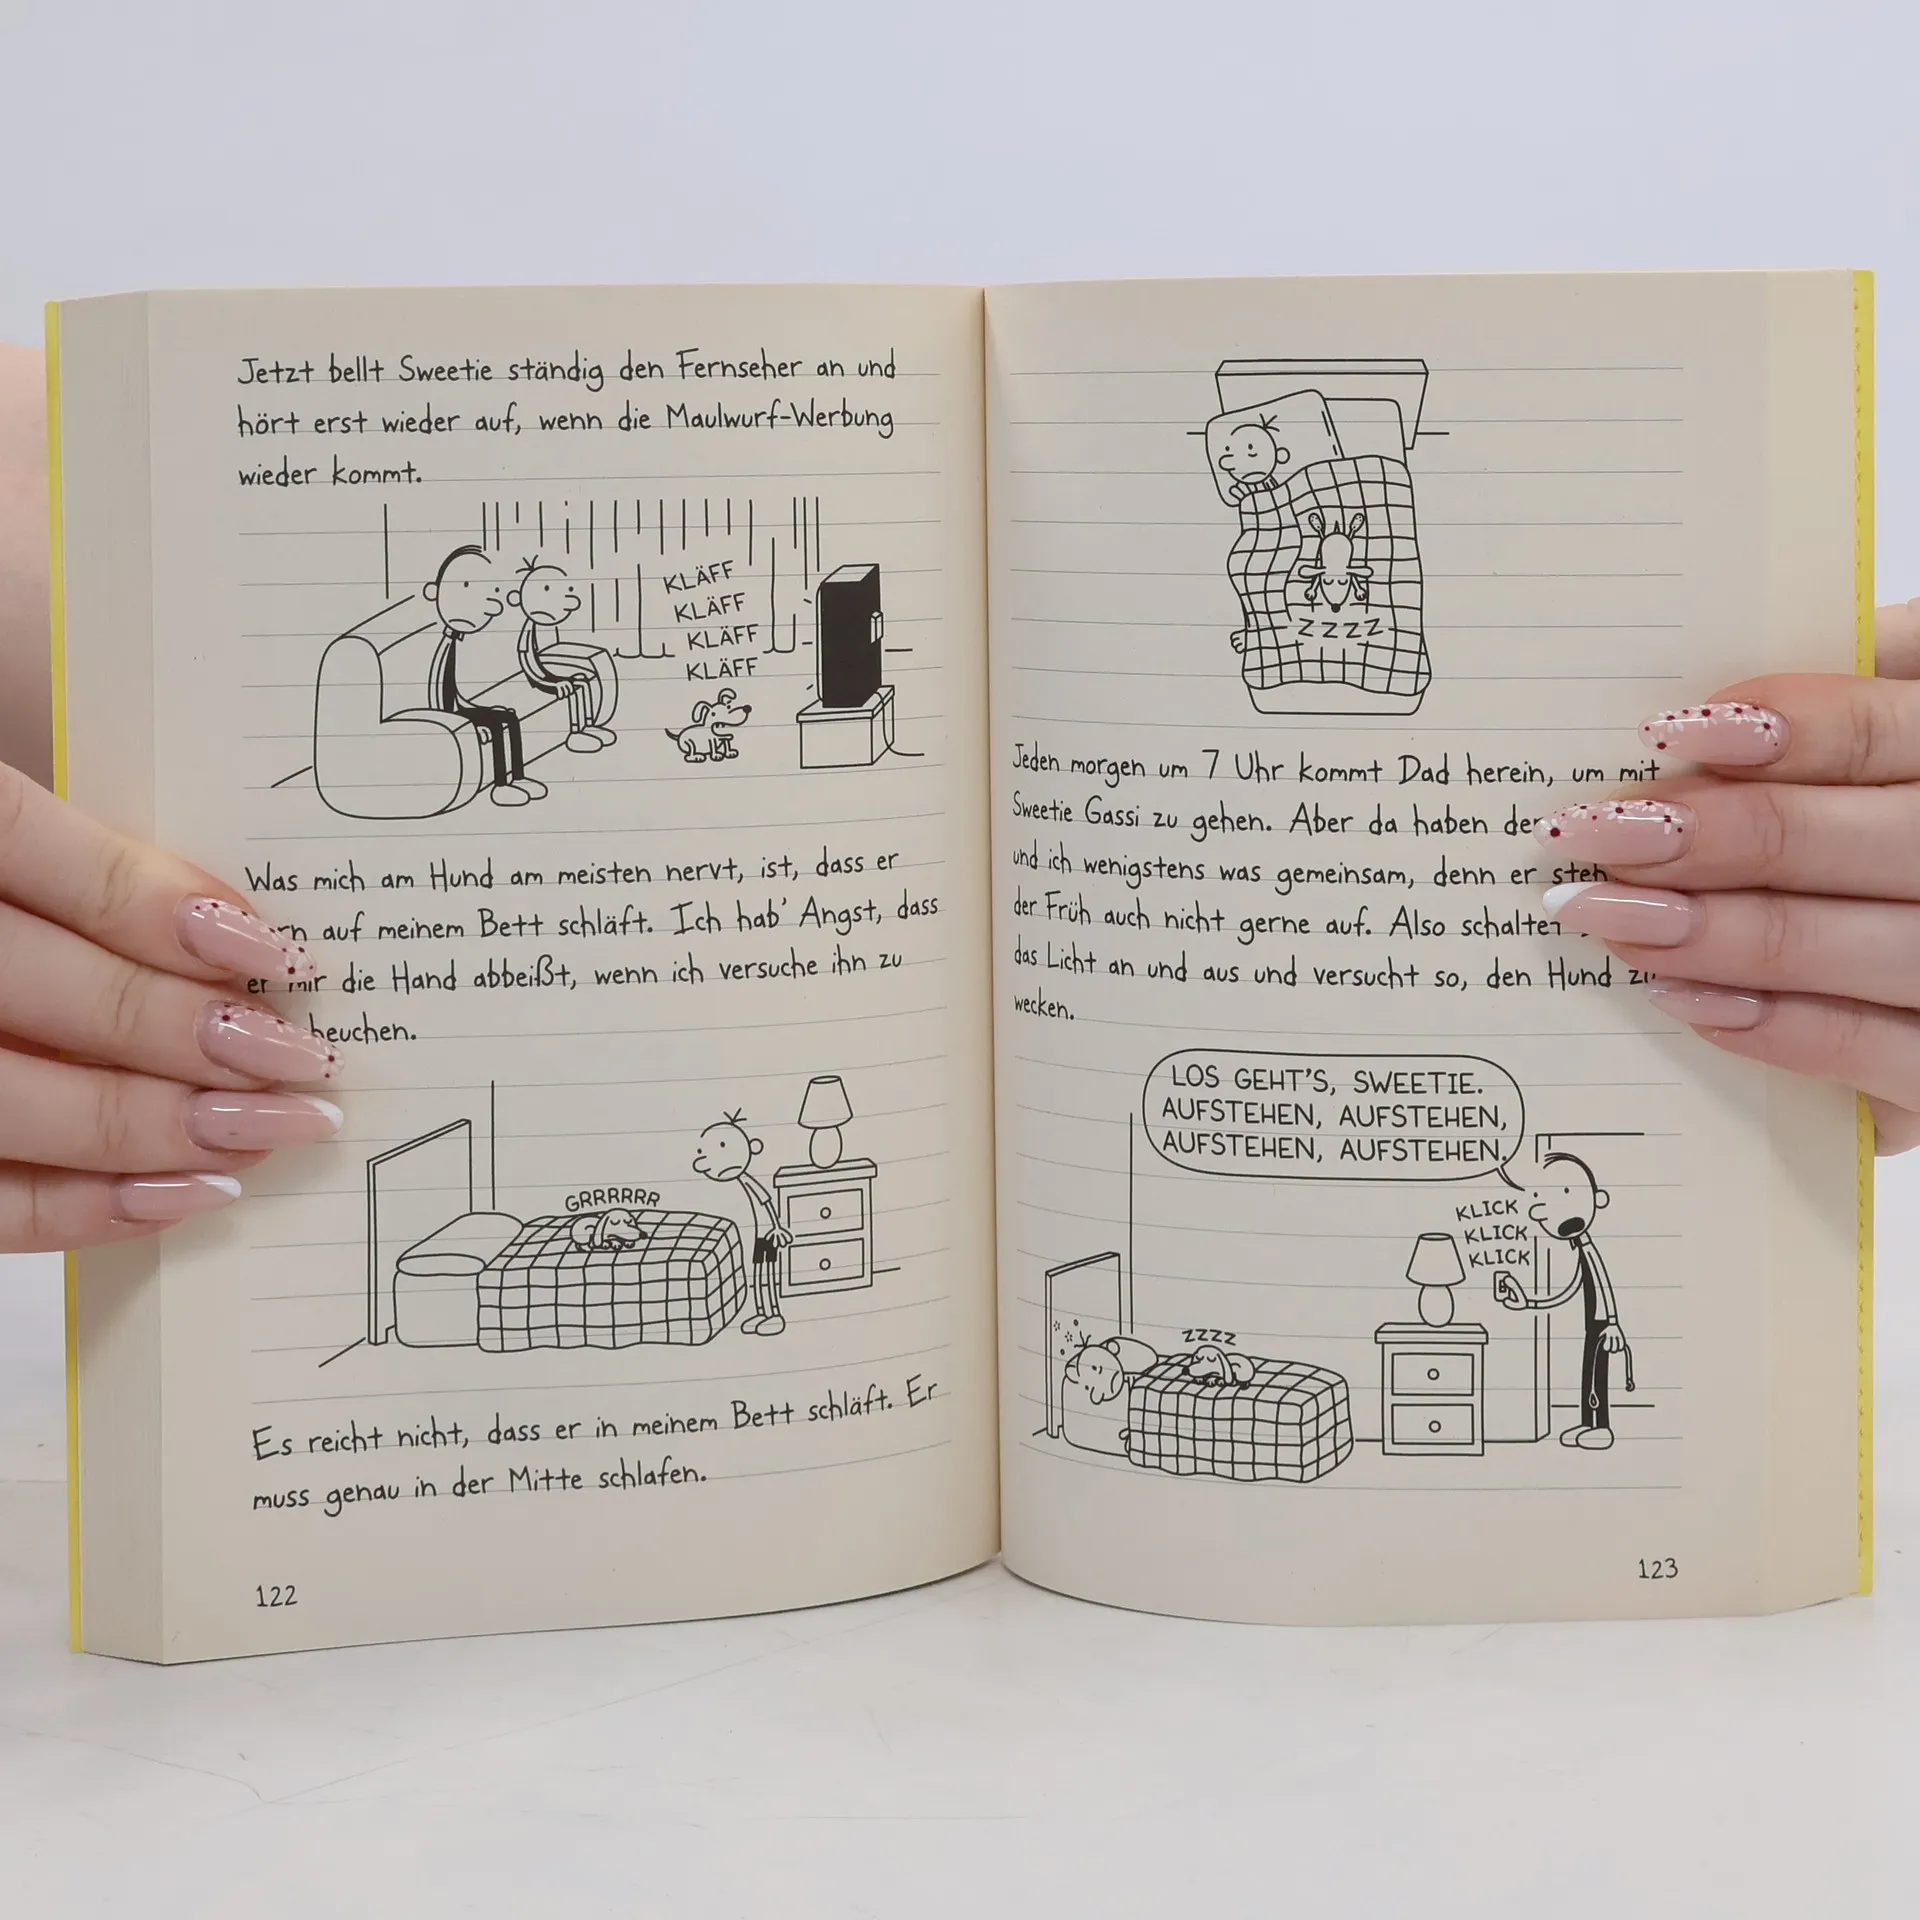 Jetzt bellt Sweetie ständig den Fernseher an und
hört erst wieder auf, wenn die Maulwurf-Werbung
wieder kommt.
KLÄFF
KLÄFF
KLÄFF
KLÄFF
Was mich am Hund am meisten nervt, ist, dass er
auf meinem Bett schläft. Ich hab' Angst, dass
er mir die Hand abbeißt, wenn ich versuche ihn zu
heuchen.
GRRRRRR
Es reicht nicht, dass er in meinem Bett schläft. Er
muss genau in der Mitte schlafen.
122
ZZZZ
Jeden morgen um 7 Uhr kommt Dad herein, um mit
Sweetie Gassi zu gehen. Aber da haben der
und ich wenigstens was gemeinsam, denn er steh
der Früh auch nicht gerne auf. Also schaltet
das Licht an und aus und versucht so, den Hund zu
wecken.
LOS GEHT'S, SWEETIE.
AUFSTEHEN, AUFSTEHEN,
AUFSTEHEN, AUFSTEHEN.
KLICK
KLICK
KLICK
ZZZZ
123